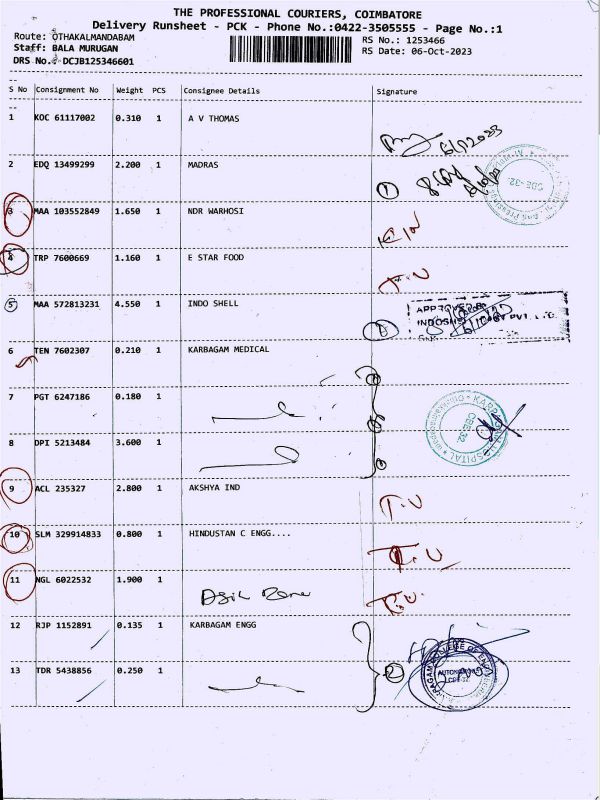 THE PROFESSIONAL COURIERS, COIMBATORE
Delivery Runsheet - PCK - Phone No.:0422-3505555 - Page No.:1
Route: OTHAKALMANDABAM
RS No.: 1253466
Staff: BALA MURUGAN
RS Date: 06-Oct-2023
DRS No.: DCJB125346601
S No Consignment No Weight PCS Consignee Details Signature
1 KOC 61117002 0.310 1 A V THOMAS
2 EDQ 13499299 2.200 1 MADRAS
1
CBE-32
3 MAA 103552849 1.650 1 NDR WARHOSI
4 TRP 7600669 1.160 1 E STAR FOOD
5 MAA 572813231 4.550 1 INDO SHELL
6 TEN 7602307 0.210 1 KARBAGAM MEDICAL
7 PGT 6247186 0.180 1
8 DPI 5213484 3.600 1
CBE-32
9 ACL 235327 2.800 1 AKSHYA IND
T.U
10 SLM 329914833 0.800 1 HINDUSTAN C ENGG....
T.U
11 NGL 6022532 1.900 1
T.U.
12 RJP 1152891 0.135 1 KARBAGAM ENGG
13 TDR 5438856 0.250 1
2